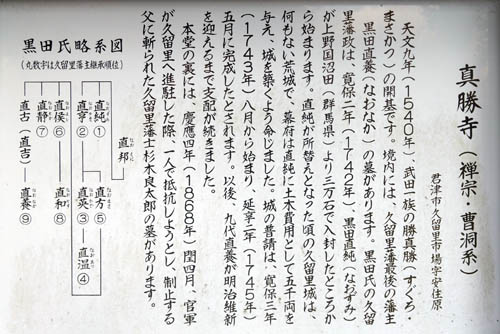 真勝寺（禅宗・曹洞系）
君津市久留里市場字安住原
天文九年（1540年）、武田一族の勝真勝（すぐろ・
まさかつ）の開基です。境内には、久留里藩最後の藩主
黒田直養（なおなか）の墓があります。黒田氏の久留
里藩政は、寛保二年（1742年）黒田直純（なおずみ）
が上野国沼田（群馬県）より三万石で入封したところか
ら始まります。直純が所替えとなった頃の久留里城は、
何もない荒城で、幕府は直純に土木費用として五千両を
与え、城を築くよう命じました。城の普請は、寛保三年
（1743年）八月から始まり、延享二年（1745年）
五月に完成したとされます。以後、九代直養が明治維新
を迎えるまで支配が続きました。
本堂の裏には、慶應四年（1868年）閏四月、官軍
が久留里へ進駐した際、一人で抵抗しようとし、制止する
父に斬られた久留里藩士杉木良太郎の墓があります。
黒田氏略系図
（丸数字は久留里藩主継承順位）
直邦
直純①
直亨②
直英③
直温④
直方⑤
直侯⑥
直静⑦
直和⑧
直古（直吉）
直養⑨